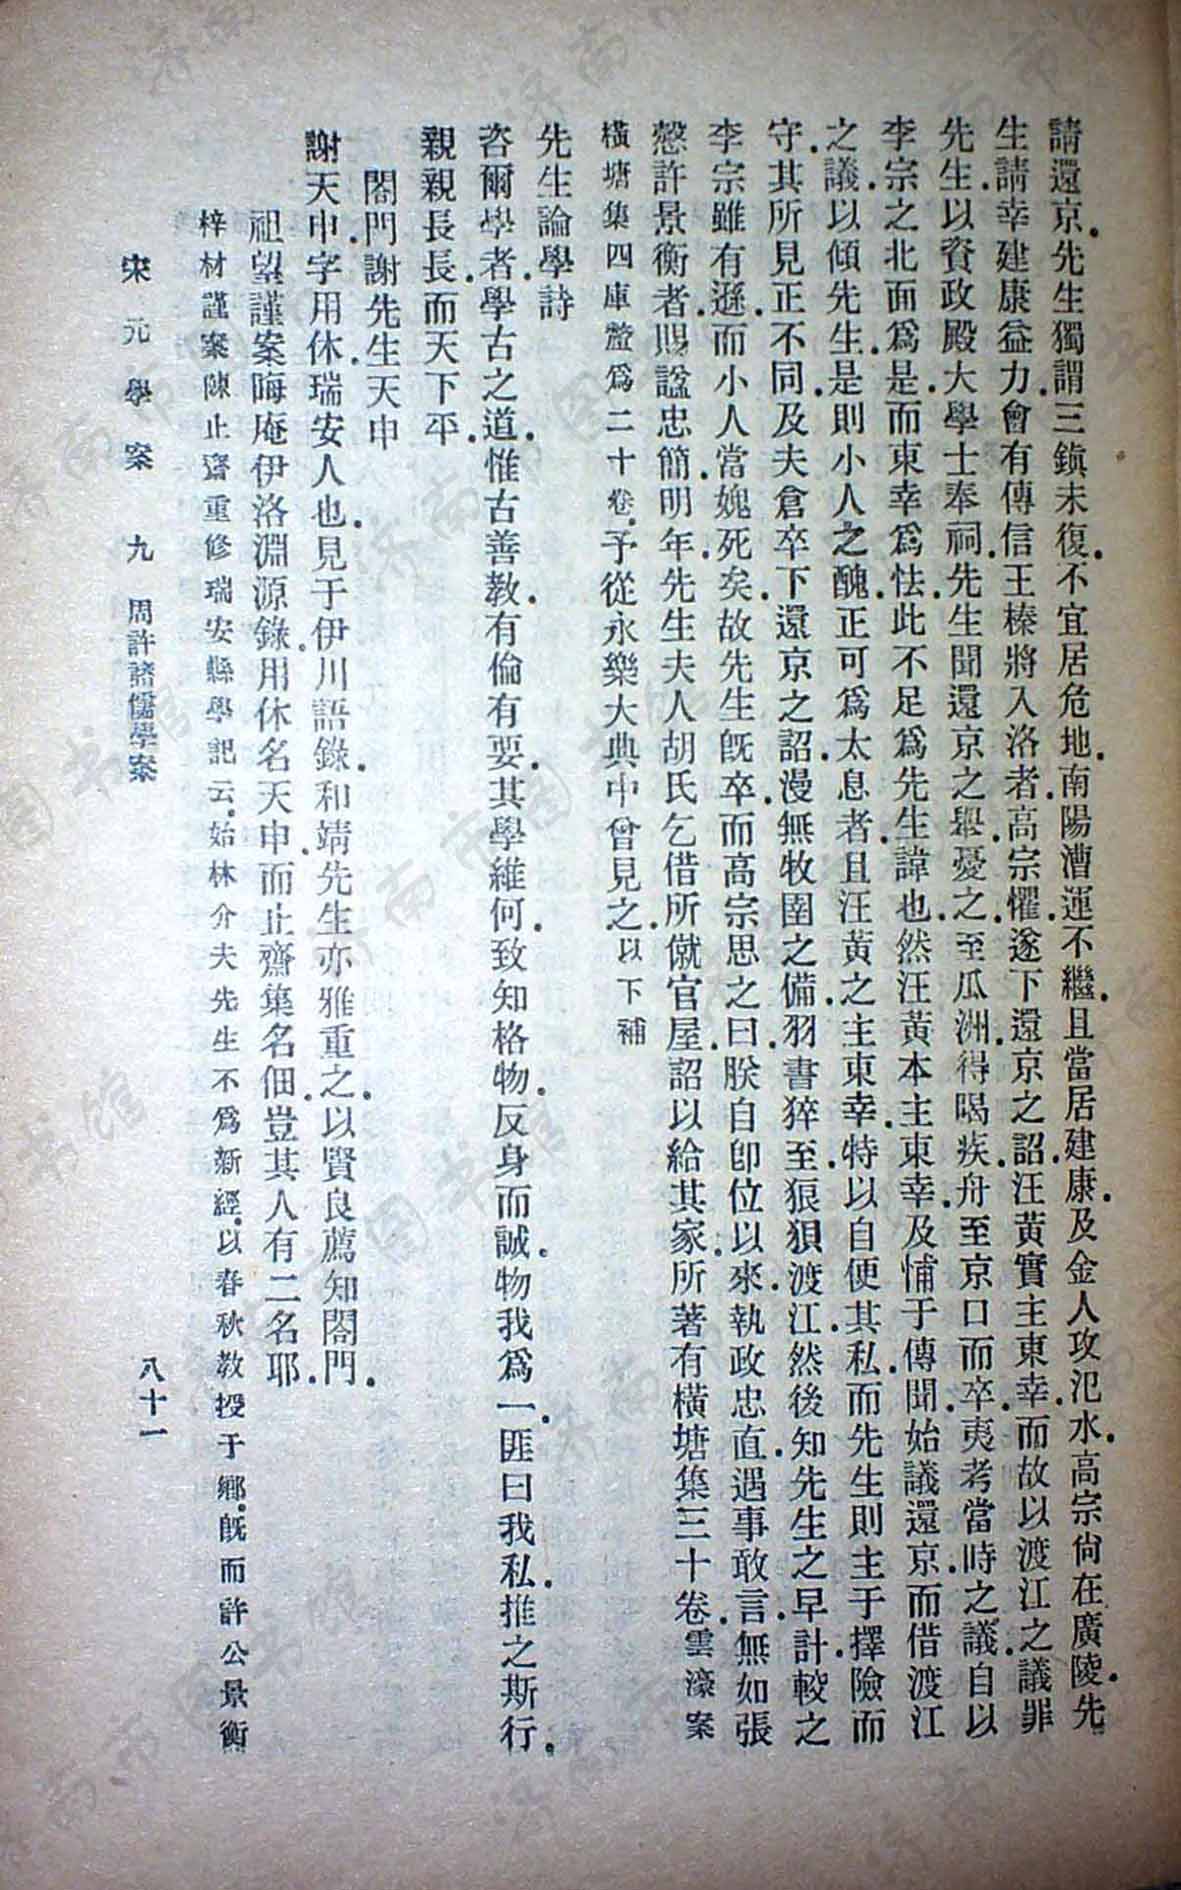 請還京。先生獨謂三鎮未復。不宜居危地。南陽漕運不繼。且當居建康。及金人攻氾水。高宗尙在廣陵。先
生請幸建康益力。會有傳信王榛將入洛者。高宗懼。遂下還京之詔。汪黃實主東幸。而故以渡江之議罪
先生。以資政殿大學士奉祠。先生聞還京之舉。憂之。至瓜洲。得暍疾。舟至京口而卒。夷考當時之議。自以
李宗之北面爲是。而東幸爲怯。此不足爲先生諱也。然汪黃本主東幸。及悑于傳聞。始議還京。而借渡江
之議以傾先生。是則小人之醜。正可爲太息者。且汪黃之主東幸。特以自便其私。而先生則主于擇險而
守。其所見正不同。及夫倉卒下還京之詔。漫無牧圉之備。羽書猝至。狼狽渡江。然後知先生之早計。較之
李宗雖有遜。而小人當媿死矣。故先生旣卒。而高宗思之曰。朕自卽位以來。執政忠直。遇事敢言。無如張
慤許景衡者。賜諡忠簡。明年。先生夫人胡氏乞借所僦官屋。詔以給其家。所著有橫塘集三十卷。雲濠案
橫塘集四庫釐爲二十卷。予從永樂大典中曾見之。以下補
先生論學詩
咨爾學者。學古之道。惟古善教。有倫有要。其學維何。致知格物。反身而誠。物我爲一。匪曰我私。推之斯行。
親親長長。而天下平。
閤門謝先生天申
謝天申。字用休。瑞安人也。見于伊川語錄。和靖先生亦雅重之。以賢良薦知閤門。
祖望謹案晦庵伊洛淵源錄。用休名天申。而止齋集名佃。豈其人有二名耶。
梓材謹案陳止齋重修瑞安縣學記云。始林介夫先生不爲新經。以春秋教授于鄉。旣而許公景衡
宋元學案 九 周許諸儒學案 八十一